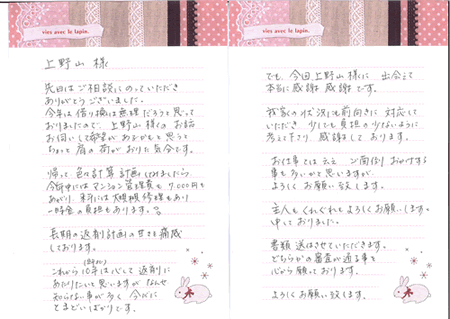 vies avec le lapin.
上野山 様
先日はご相談にのっていただき
ありがとうございました。
今年は借り換は無理だろうと思って
おりましたので、上野山様のお話
お伺いして希望があるかもと思うと
ちょっと肩の荷がおりた気分です。
帰って色々計算 計画してましたら
今年中にはマンション管理費も7,000円も
あがり、来年には大規模修理もあり
一時金の負担もあります。
長期の返済計画の甘さを痛感
しております。
これから10年は心して返済に
あたりたいと思いますが なんせ
知らない事が多く 今だに
とまどいばかりです。
vies avec le lapin.
でも、今回上野山様に 出会えて
本当に感謝 感謝です。
我家の状況にも前向きに 対応して
いただき 少しでも負担の少ないように
考えて下さり 感謝しております。
お仕事では云え ご面倒おかけする
事も多いかと思いますが
よろしくお願い致します。
主人もくれぐれもよろしくお願いしますと
申しておりました。
書類 送らせていただきます。
どちらかの審査が通る事を
心から願っております。
よろしくお願い致します。